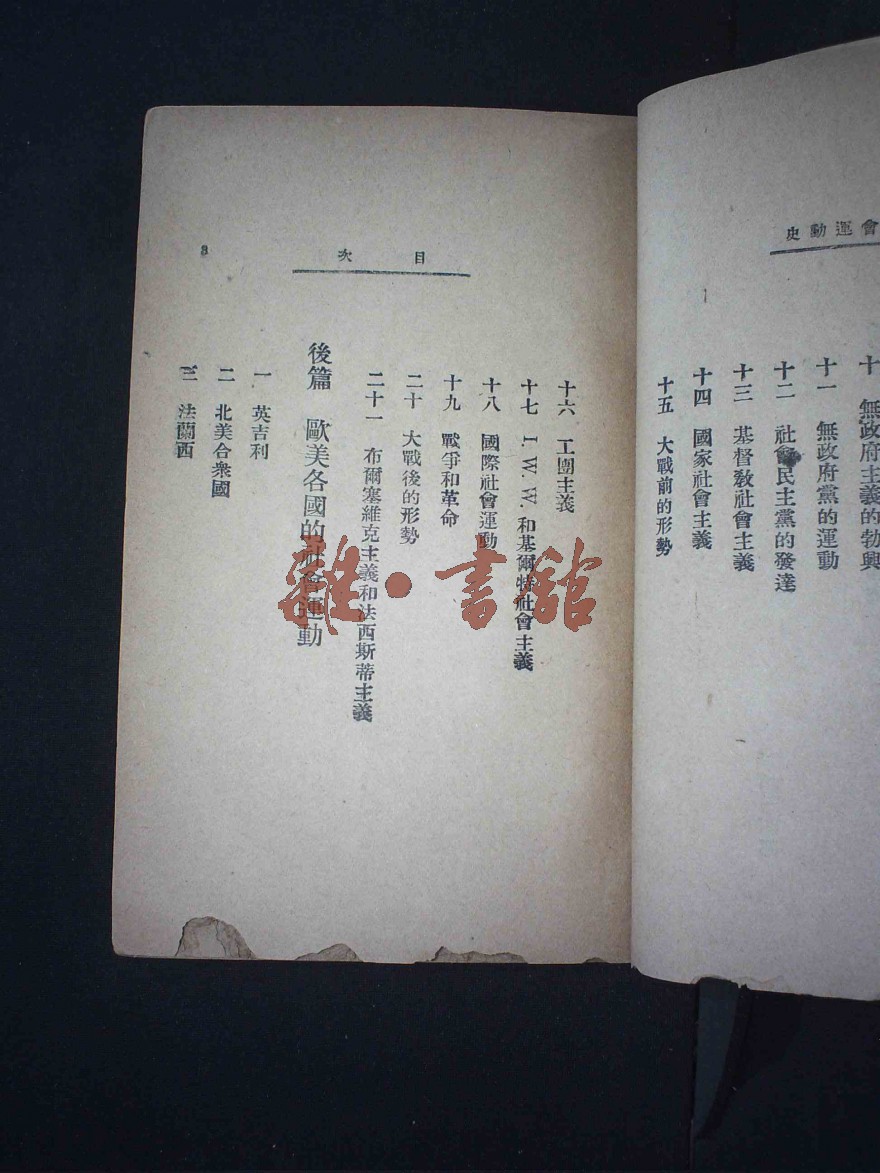 會運動史
十 無政府主義的勃興
十一 無政府黨的運動
十二 社會民主黨的發達
十三 基督教社會主義
十四 國家社會主義
十五 大戰前的形勢
目次
3
十六 工團主義
十七 I. W. W. 和基爾特社會主義
十八 國際社會運動
十九 戰爭和革命
二十 大戰後的形勢
二十一 布爾塞維克主義和法西斯蒂主義
後篇 歐美各國的社會運動
一 英吉利
二 北美合衆國
三 法蘭西
雜·書館